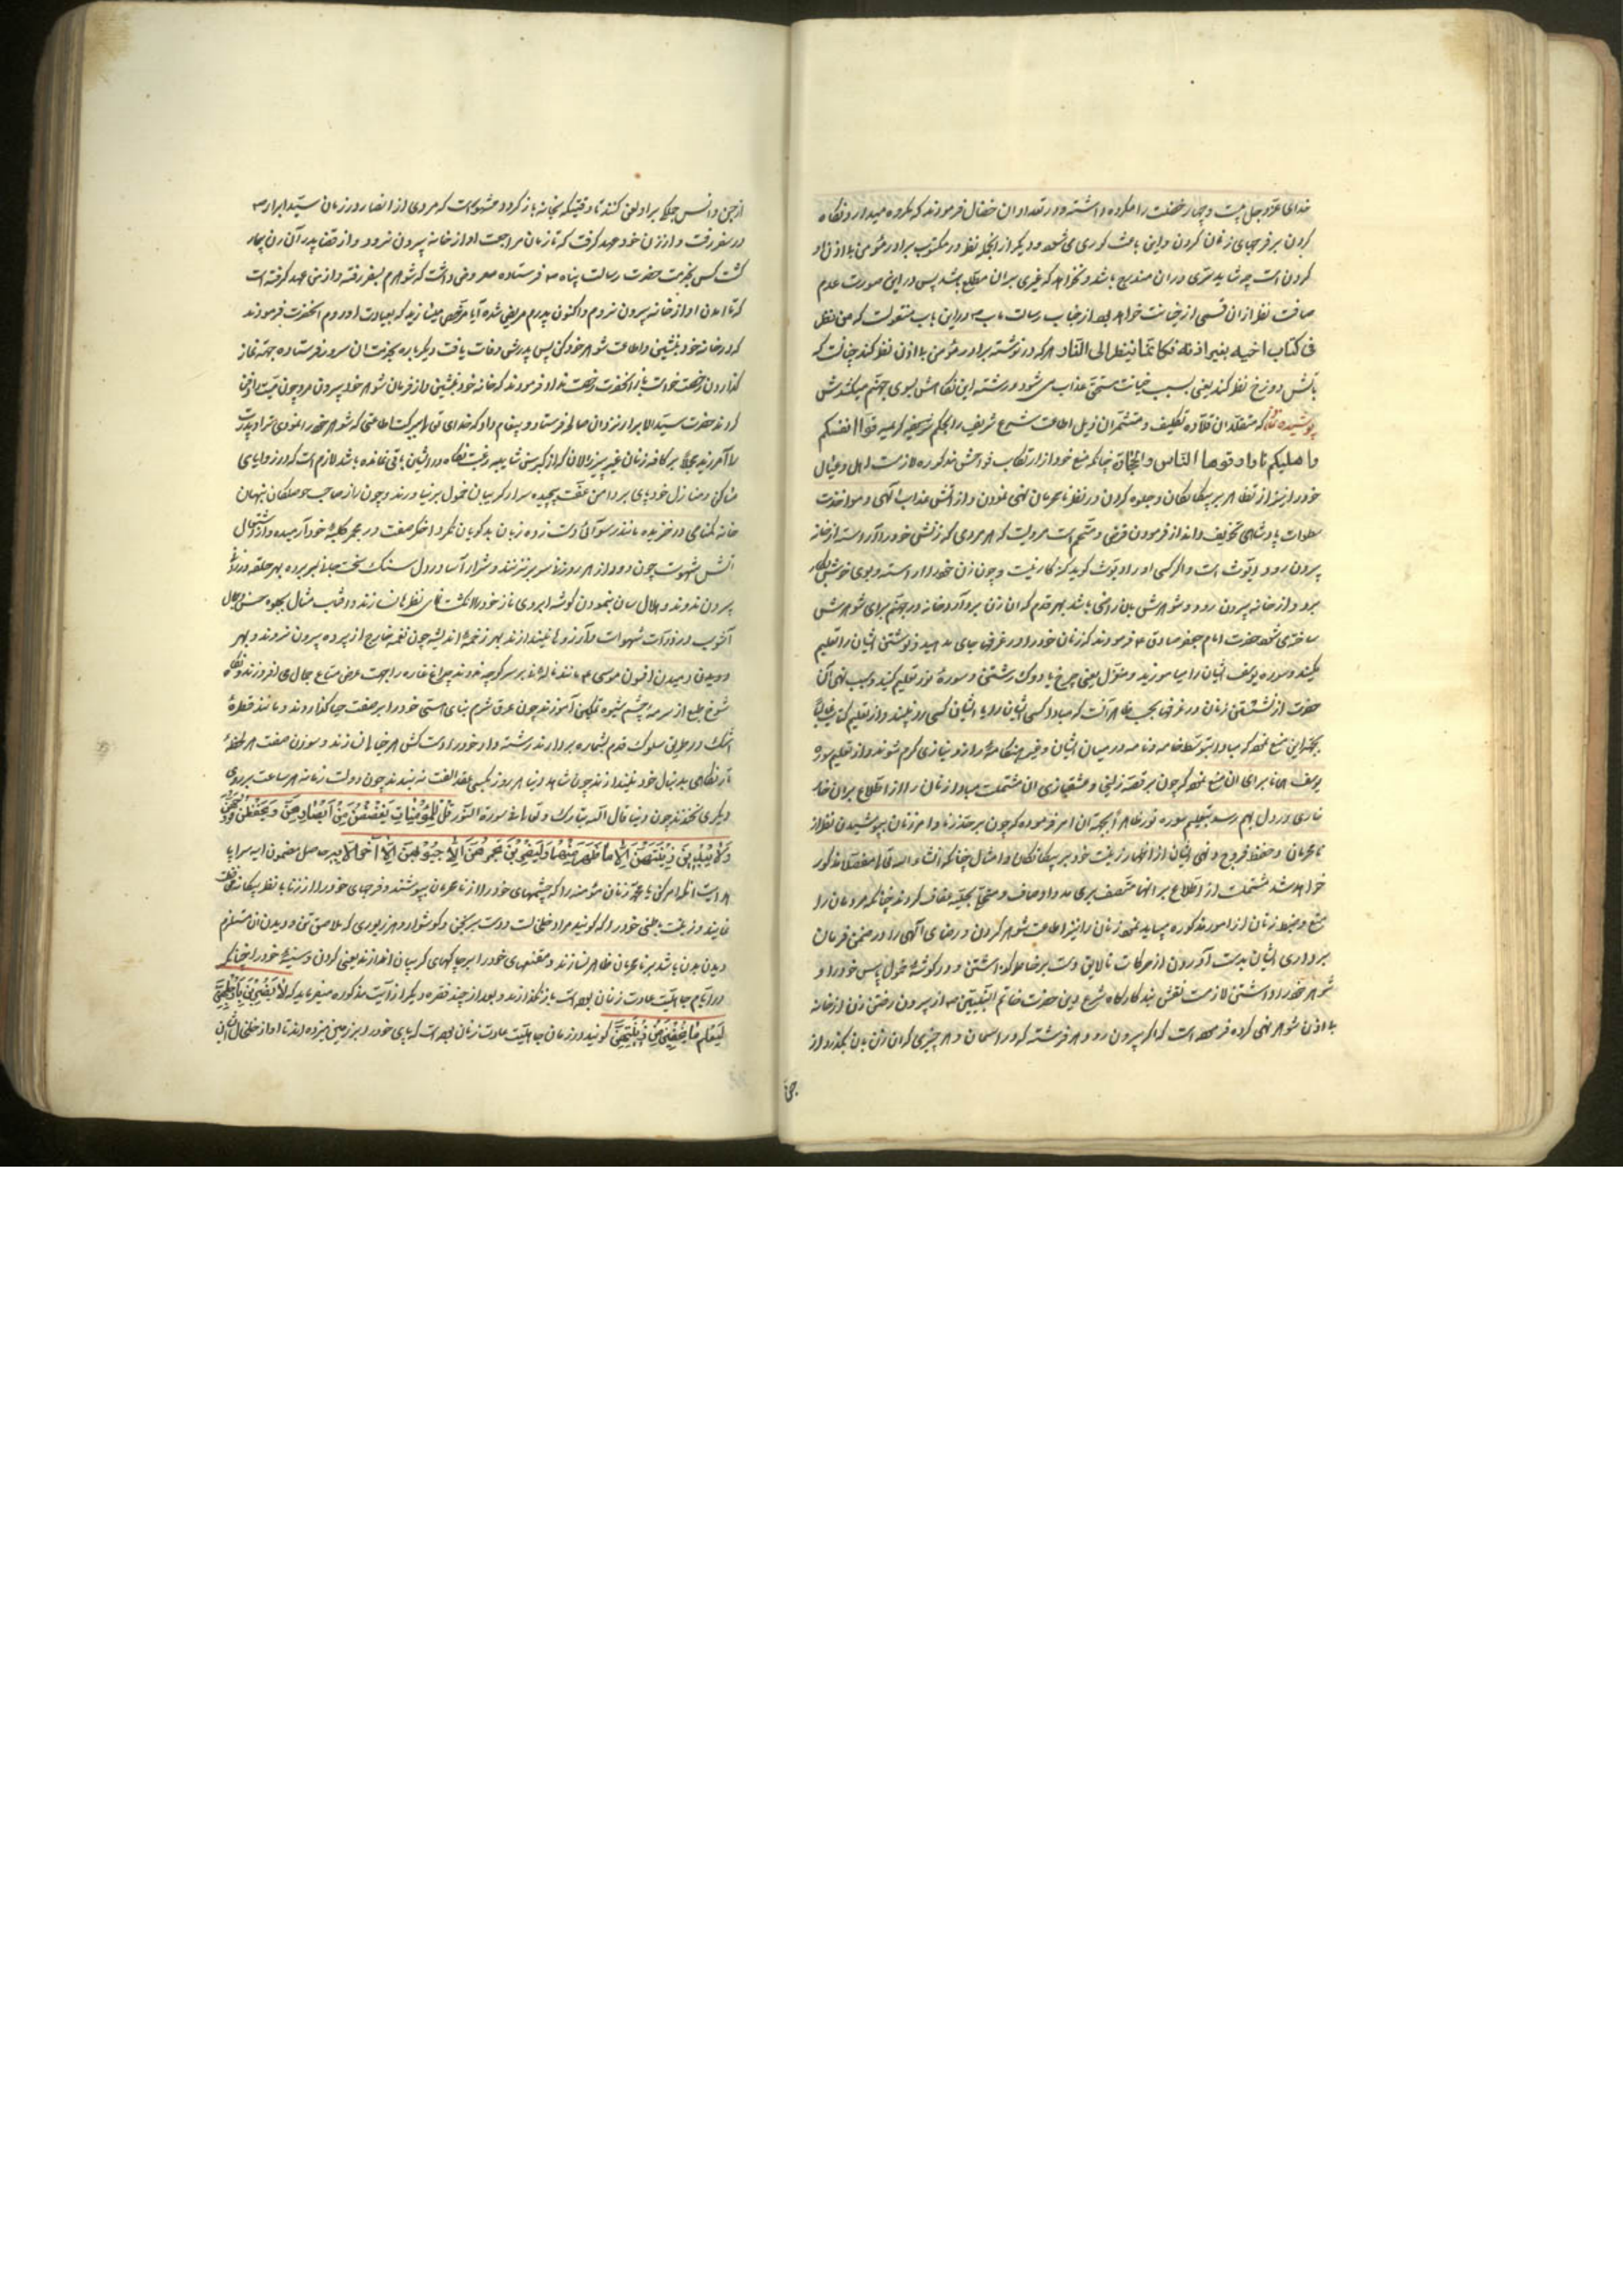 خدای عزّ و جل بیست و چهار خصلت را مکروه داشته و در تعداد ان خصال فرمودند که مکروه میدارد نکاه
کردن بر فرجهای زنان کردن و این باعث کوری می شود و دیکر از انجمله نظر در مکتوب برادر مؤمن بلا اذن او
کردن است چه شاید سرّی در ان مندرج باشد و نخواهد که غیری بر ان مطلع باشد پس در این صورت عدم
من نظر
فی کتاب اخیه بغیر اذنه فکانّما ینظر الی النّار هر که در نوشته برادر مؤمن بلا اذن نظر کند چنانست که
باتش دوزخ نظر کند یعنی بسبب خیانت مستحق عذاب می شود و رشته این نکاهش بسوی جهنم میکشدش
پوشیده نماند که متقلّدان قلاده تکلیف و متشمّران ذیل اطاعت شرع شریف را بحکم کریمه قوا انفسکم
و اهلیکم نارا وقودها النّاس و الحجارة چنانکه منع خود از ارتکاب فواحش مذکوره لازمست اهل و عیال
خود را نیز از تظاهر بر بیکانکان و جلوه کردن در نظر نامحرمان نهی نمودن و از آتش عذاب الهی و مواخذت
سطوات پادشاهی تخویف و انذار فرمودن فرض و متحتم است مرویست که هر مردی که زنش خود را آراسته از خانه
بیرون رود دیّوث است و اکر کسی او را دیّوث کوید کنه کار نیست و چون زن خود را اراسته و بوی خوش بکار
برد و از خانه بیرون رود و شوهرش بان راضی باشد بهر قدم که ان زن بردارد خانه در جهنم برای شوهرش
ساخته می شود حضرت امام جعفر صادق ع فرمودند که زنان خود را در غرفها جای مدهید و نوشتن ایشان را تعلیم
مکنید و سوره یوسف ایشان را میاموزید و مغزل یعنی چرخ یا دوک رشتن و سوره نور تعلیم کنید و سبب نهی آن
حضرت از نشستن زنان در غرفها بحسب ظاهر آنست که مبادا کسی ایشان را و یا ایشان کسی را به بینند و از تعلیم کتابت غالباً
بجهة این منع نموده که مبادا بتوسط خامه و نامه در میان ایشان و غیر هنکامهٔ راز و نیازی کرم شود و از تعلیم سوره
یوسف همانا برای ان منع نموده که چون بر قصّه زلیخا و عشقبازی ان مشتملست مبادا زنان را از اطلاع بر ان خار
خاری در دل بهم رسد و بتعلیم سوره نور ظاهرا بجهة ان امر فرموده که چون بر حذر زنا و امر زنان بپوشیدن نظر از
نامحرمان و حفظ فروج و نهی ایشان از اظهار زینت خود بر بیکانکان و امثال چنانکه انشاء الله تعالی مفصلا مذکور
خواهد شد مشتملست از اطلاع بر انها متصف بری بد اوصاف و متحلی بحلیه عفاف کردند چنانکه مردمان را
منع و ضبط زنان از امور مذکوره میباید نمود زنان را نیز اطاعت شوهر کردن و رضای الهی را در ضمن فرمان
برداری ایشان بدست آوردن از حرکات نالایق دست برداشتن و در کوشهٔ خمول پاس خود را و
شوهر خود را داشتن لازمست نقش بند کارکاه شرع دین حضرت خاتم النبیین ص از بیرون رفتن زن از خانه
بلا اذن شوهر نهی کرده فرموده است که اکر بیرون رود هر فرشته که در اسمان و هر چیزی که ان زن بان بکذرد از
از جن و انس جملکی بر او لعن کنند تا وقتیکه بخانه باز کردد مشهور است که مردی از انصار در زمان سیّد ابرار ص
در سفر رفت و از زن خود عهد کرفت که تا زمان مراجعت او از خانه بیرون نرود و از قضا پدر آن زن بیمار
کشت کس بخدمت حضرت رسالت پناه ص فرستاده معروض داشت که شوهرم بسفر رفته و از من عهد کرفته است
که تا امدن او از خانه بیرون نروم و اکنون پدرم مریض شده آیا مرخص میسازید که بعیادت او روم انحضرت فرمودند
که در خانه خود بنشین و اطاعت شوهر خود کن پس پدرش وفات یافت دیکر باره بخدمت ان سرور فرستاده بجهة نماز
کذاردن رخصت خواست باز انحضرت رخصت نداد فرمودند که خانه خود بنشین و از فرمان شوهر خود بیرون مرو چون میّت را دفن
کردند حضرت سیّد الابرار نزد ان صالحه فرستاد و پیغام داد که خدای تعالی ببرکت اطاعتی که شوهر خود را نمودی ترا و پدرت
را آمرزید مجملا بر کافه زنان غیر پیر زالان که از کبر سن شایبه رغبت نکاه در ایشان باقی نمانده باشد لازم است که در زوایای
مساکن و منازل خود پای بر دامن عفّت پیچیده سر از کریبان خمول بر نیاورند و چون راز صاحب حوصلکان پنهان
آتش شهوت چون دود از هر روزنه سر بر نزنند و شرار آسا در دل سنک سخت
بیرون ندوند و هلال سان بنمودن کوشه ابروی ناز خود را انکشت نمای نظرها نسازند و افتاب مثال بجلوه حسن و جمال
شوخ طبع از سرمهٔ چشم شیوه تمکین آموزند چون عرق شرم بنای هستی خود را بر صفت حیا کذارند و مانند قطرهٔ
اشک در طریق سلوک قدم بشماره بردارند
دیکری نخندند چون دنیا قال الله تبارک و تعالی فی سورة النّور قُلْ لِلْمُؤْمِنَاتِ یَغْضُضْنَ مِنْ اَبْصَارِهِنَّ وَ یَحْفَظْنَ فُرُوجَهُنَّ
وَ لَا یُبْدِینَ زِینَتَهُنَّ اِلَّا مَا ظَهَرَ مِنْهَا وَ لْیَضْرِبْنَ بِخُمُرِهِنَّ عَلَی جُیُوبِهِنَّ اِلَی آخر الایه حاصل مضمون ایه سراپا
هدایت انکه امر کن یا محمّد زنان مؤمنه را که چشمهای خود را از نامحرمان بپوشند و فرجهای خود را از زنا یا نظر بیکانه محافظت
نمایند و زینت باطنی خود را که کویند مراد خلخالست و دست برنجن و کوشوار و هر زیوری که ملاصق تن و دیدن ان مستلزم
دیدن بدن باشد بر نامحرمان ظاهر نسازند و مقنعهای خود را بر چاکهای کریبان اندازند یعنی کردن و سینهٔ خود را چنانکه
در ایّام جاهلیّت عادت زنان بوده است باز نکذارند و بعد از چند فقره دیکر از آیت مذکوره میفرماید که لَا یَضْرِبْنَ بِاَرْجُلِهِنَّ
لِیُعْلَمَ مَا یُخْفِینَ مِنْ زِینَتِهِنَّ کویند در زمان جاهلیّت عادت زنان بوده است که پای خود را بر زمین میزده اند تا اواز خلخال ایشان